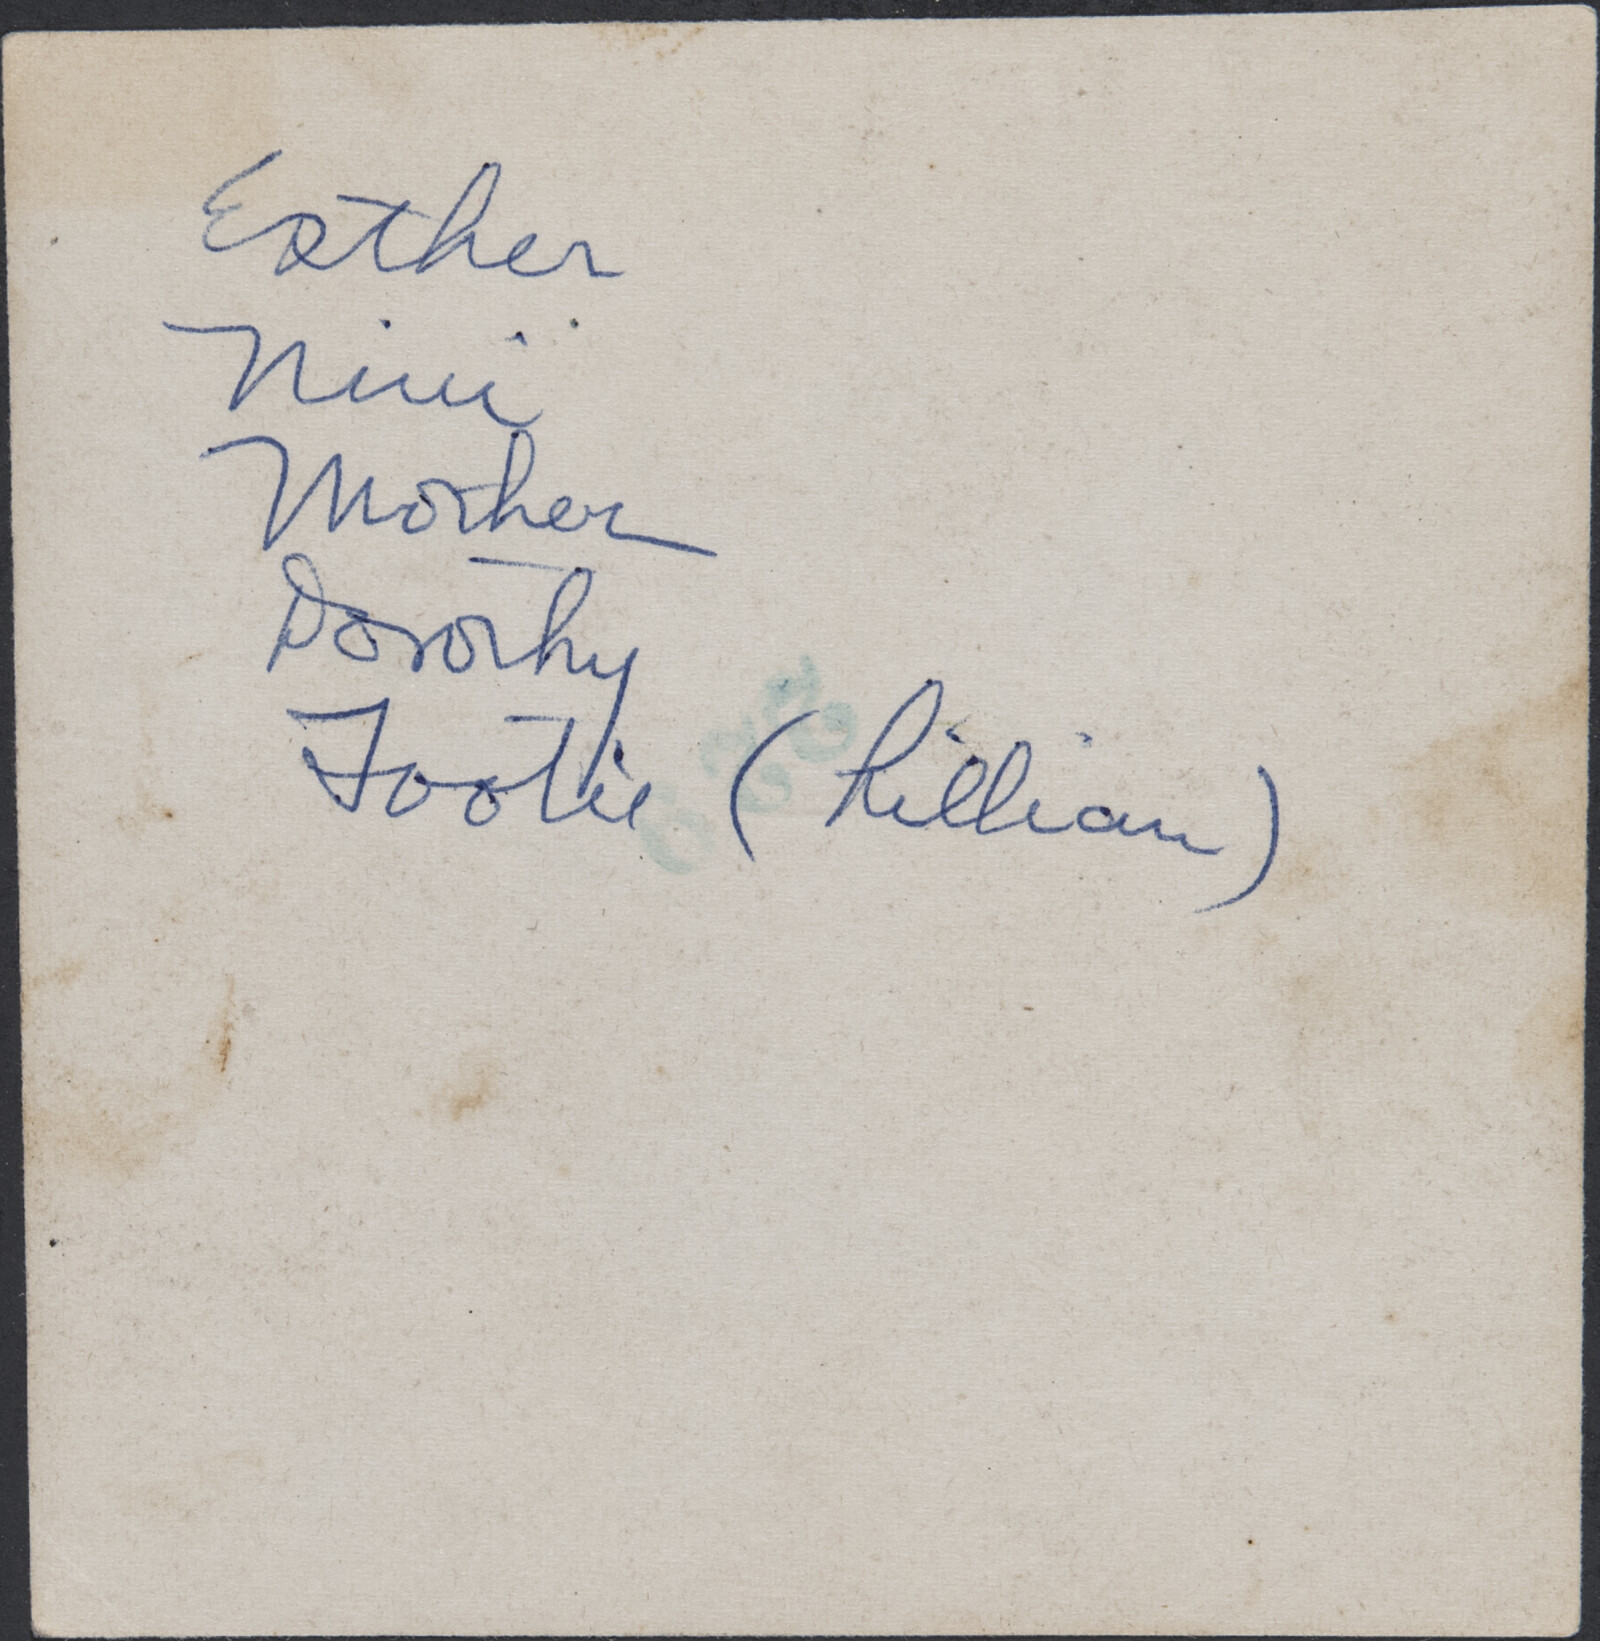 Esther
Nini
Mother
Dorothy
Tootie (Lillian)